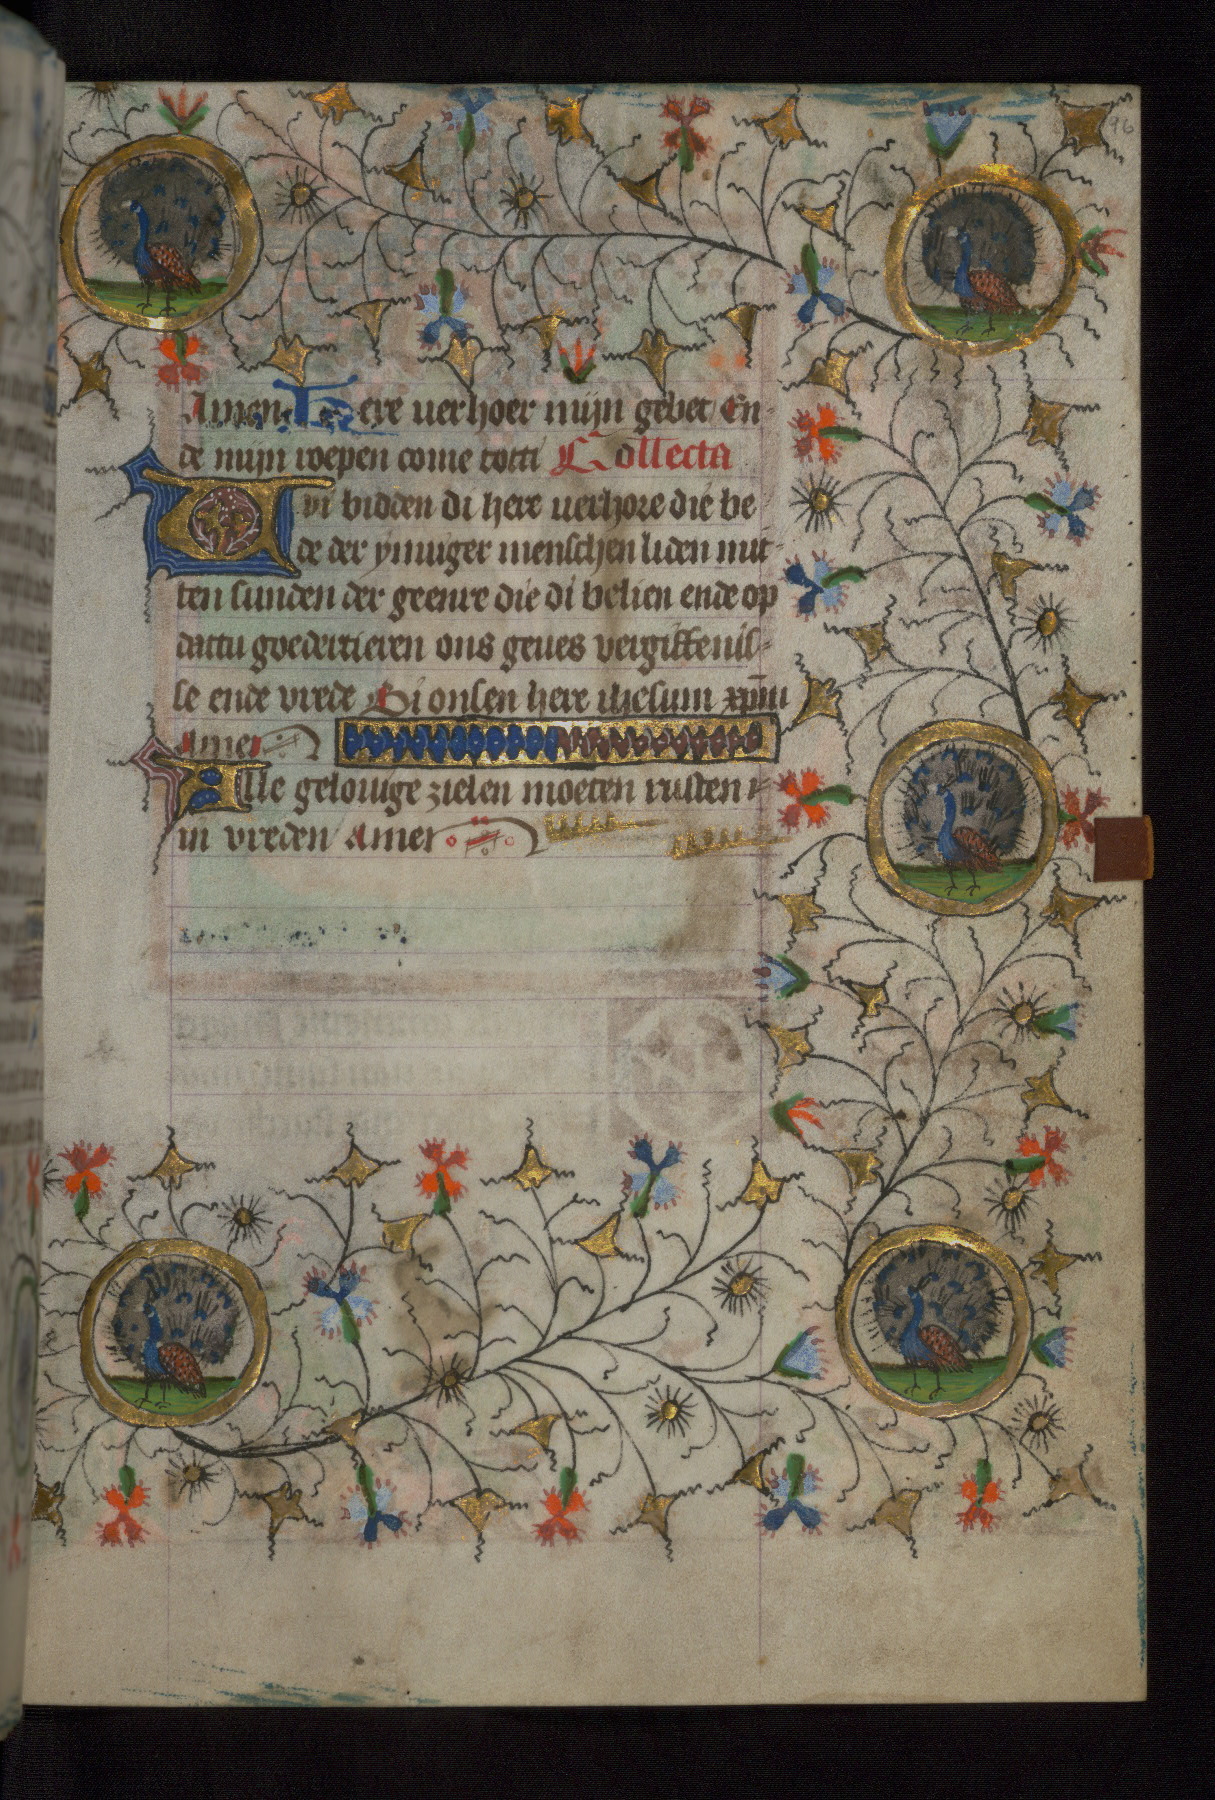 96
Amen Here verhoer mijn gebet En-
de mijn roepen come totti Collecta
Wi bidden di here verhore die be
de der ynniger menschen liden mit-
ten sunden der geenre die di belien ende op
dattu goedertieren ons geves vergiffenis-
se ende vrede Bi onsen here ihesum xpm
Amen
Alle gelovige zielen moeten rusten
in vreden Amen